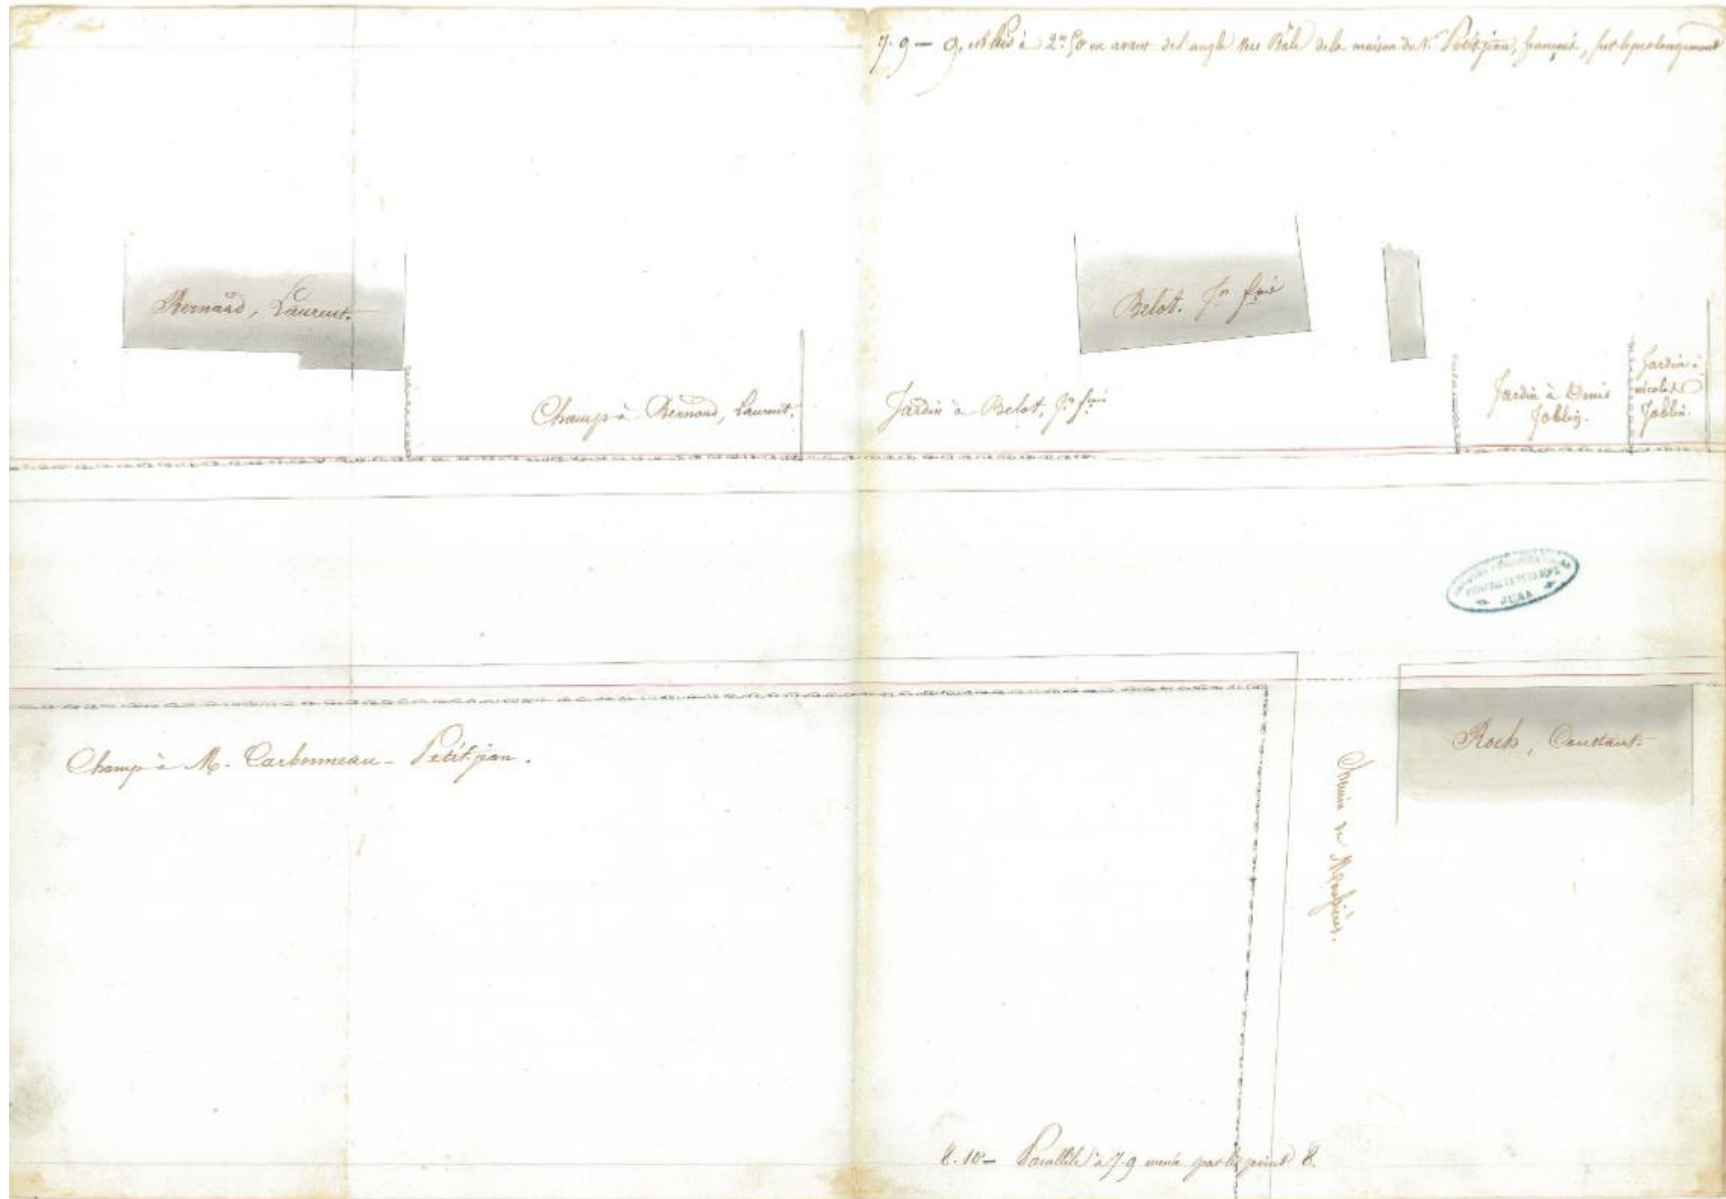 7. 9 — 9, est fixé à 2m 50 en avant de l'angle vers Bâle de la maison du Sr Petitjean, françois, sur le prolongement
Bernard, Laurent.
Belot. Jn fois
Champ à Bernard, Laurent.
Jardin à Belot, Jn fois
Jardin à Denis
Joblin.
Jardin à
nicolas
Joblin.
JURA
Champ à M. Carbonneau - Petitjean.
Roch, Constant.
Chemin de
8. 10 — Parallèle à 7. 9 menée par le point 8.